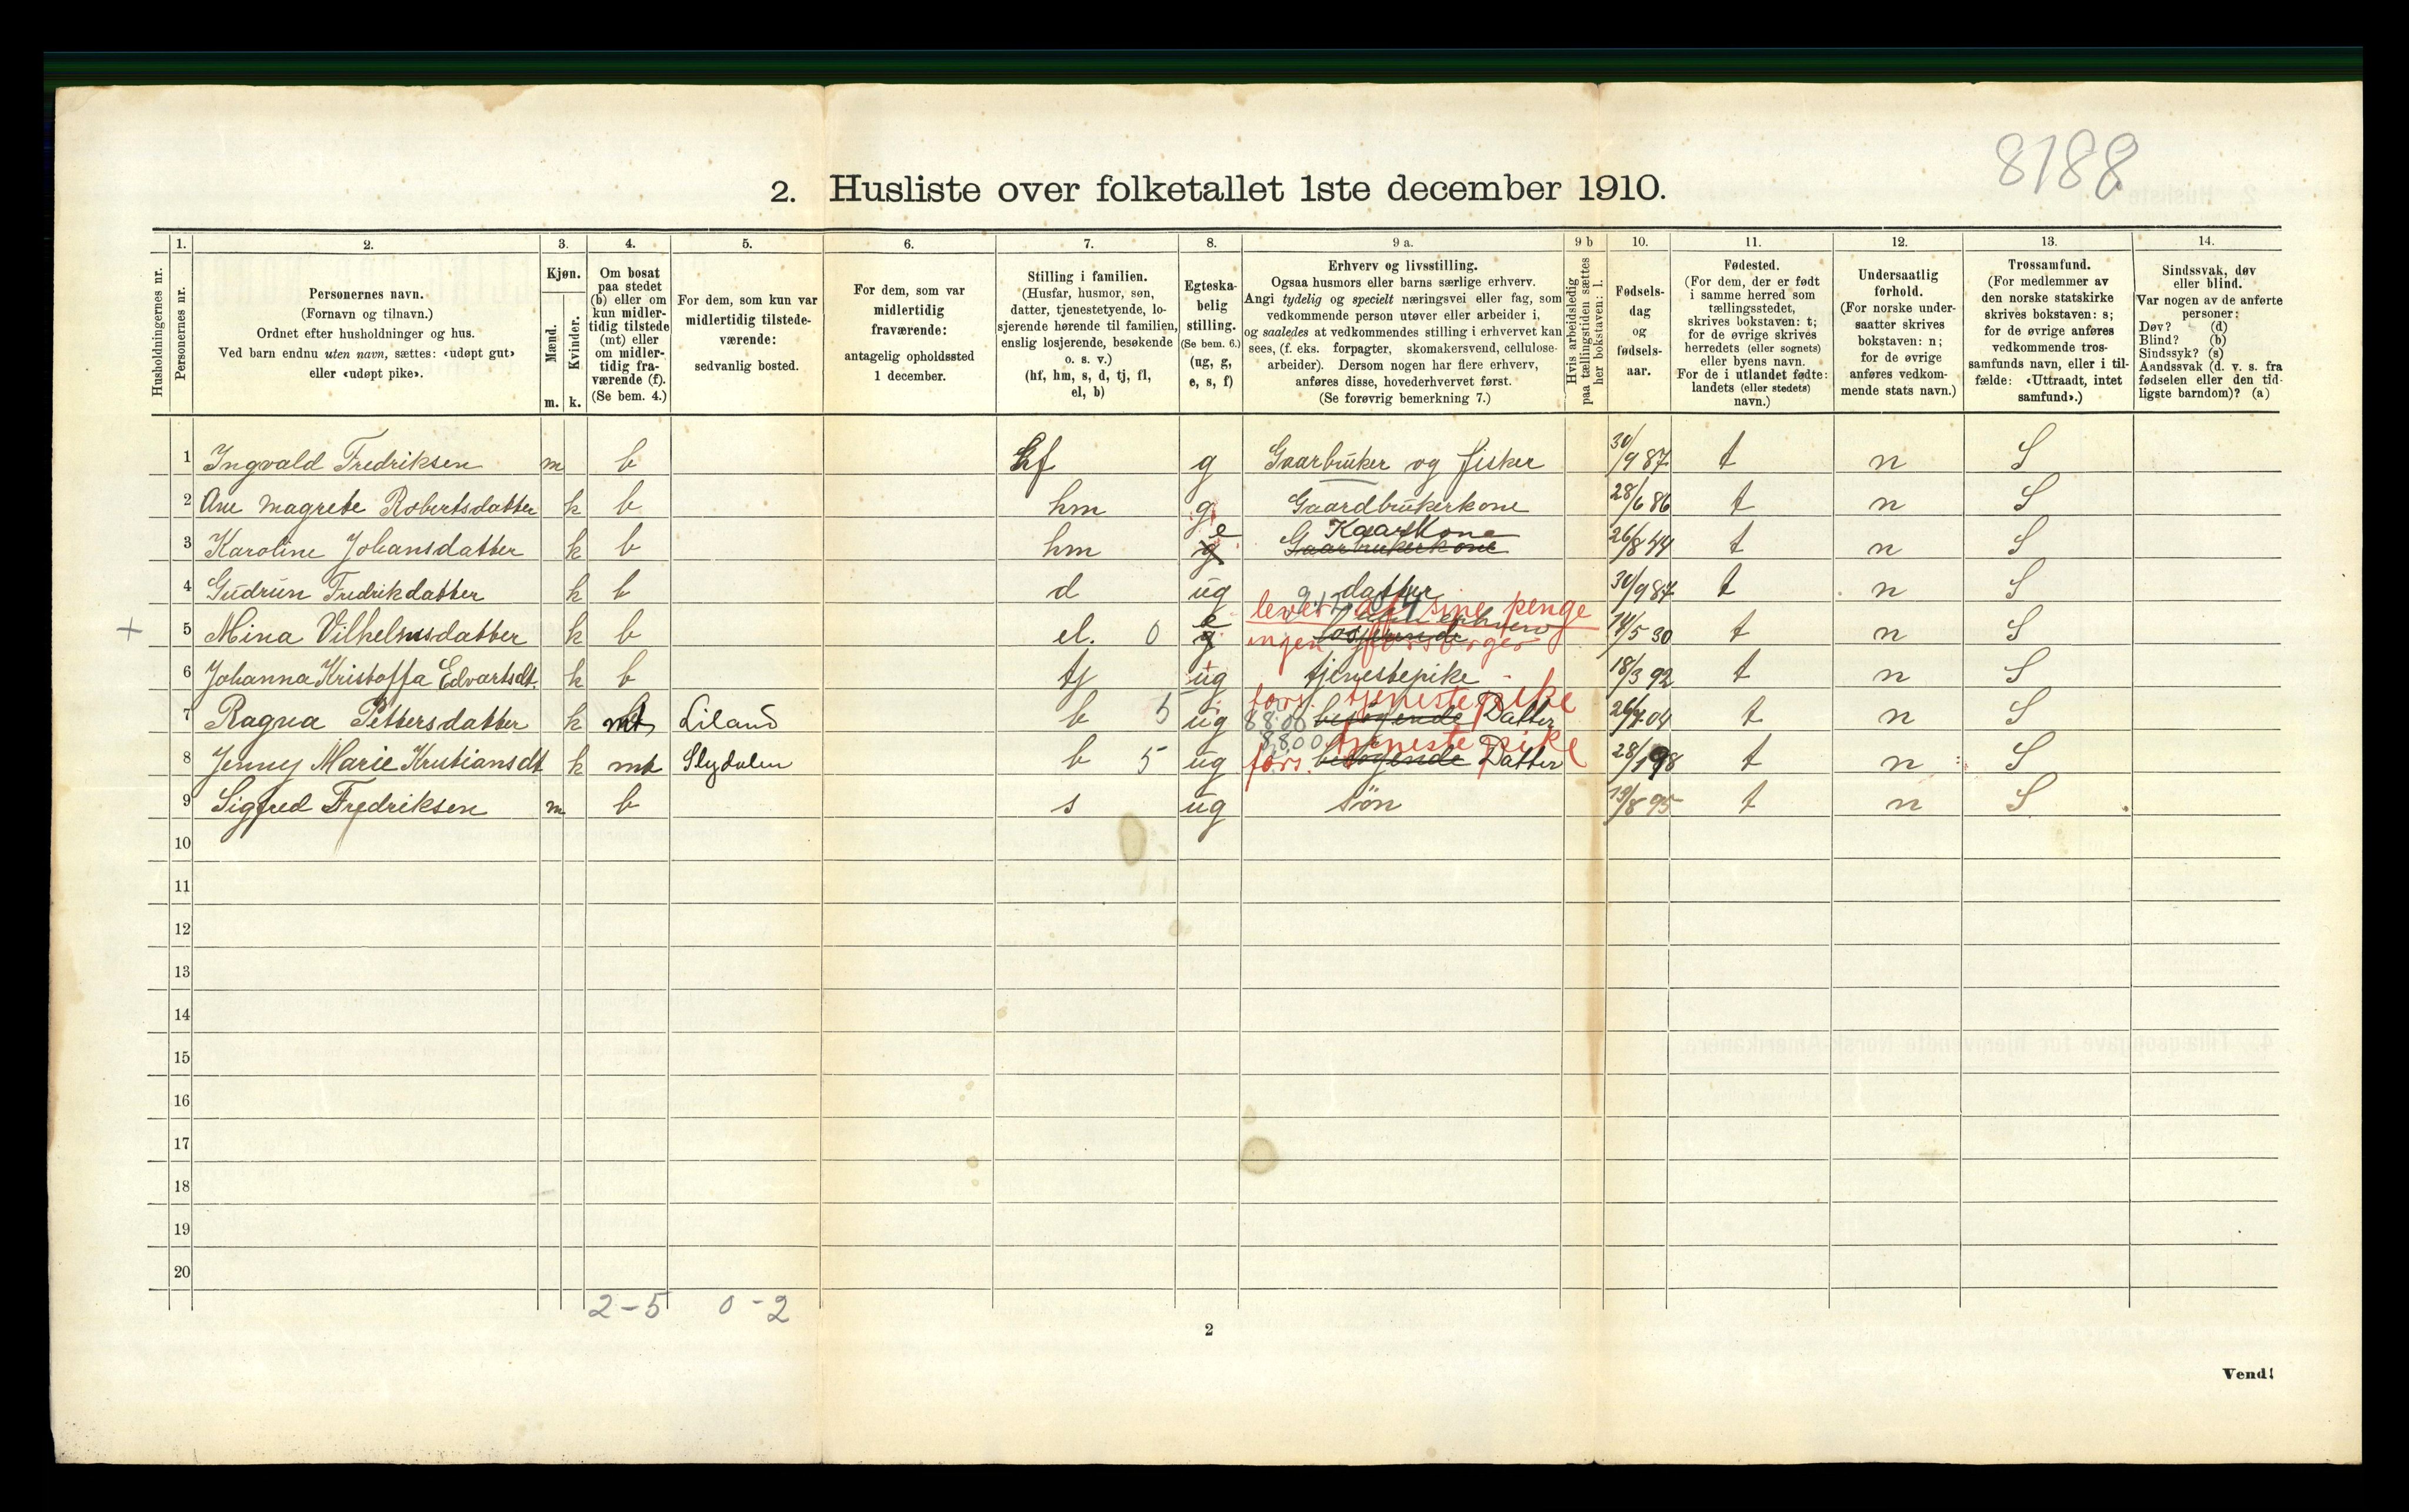 8188
2. Husliste over folketallet 1ste december 1910.
Husholdningernes nr.
1.
Personernes nr.
2.
Personernes navn.
(Fornavn og tilnavn.)
Ordnet efter husholdninger og hus.
Ved barn endnu uten navn, sættes: «udøpt gut»
eller «udøpt pike».
3.
Kjøn.
Mænd.
Kvinder.
m. k.
4.
Om bosat
paa stedet
(b) eller om
kun midler-
tidig tilstede
(mt) eller
om midler-
tidig fra-
værende (f).
(Se bem. 4.)
5.
For dem, som kun var
midlertidig tilstede-
værende:
sedvanlig bosted.
6.
For dem, som var
midlertidig
fraværende:
antagelig opholdssted
1 december.
7.
Stilling i familien.
(Husfar, husmor, søn,
datter, tjenestetyende, lo-
sjerende hørende til familien,
enslig losjerende, besøkende
o. s. v.)
(hf, hm, s, d, tj, fl,
el, b)
8.
Egteska-
belig
stilling.
(Se bem. 6.)
(ug, g,
e, s, f)
9 a.
Erhverv og livsstilling.
Ogsaa husmors eller barns særlige erhverv.
Angi tydelig og specielt næringsvei eller fag, som
vedkommende person utøver eller arbeider i,
og saaledes at vedkommendes stilling i erhvervet kan
sees, (f. eks. forpagter, skomakersvend, cellulose-
arbeider). Dersom nogen har flere erhverv,
anføres disse, hovederhvervet først.
(Se forøvrig bemerkning 7.)
9 b
Hvis arbeidsledig
paa tællingstiden sættes
her bokstaven: l.
10.
Fødsels-
dag
og
fødsels-
aar.
11.
Fødested.
(For dem, der er født
i samme herred som
tællingsstedet,
skrives bokstaven: t;
for de øvrige skrives
herredets (eller sognets)
eller byens navn.
For de i utlandet fødte:
landets (eller stedets)
navn.)
12.
Undersaatlig
forhold.
(For norske under-
saatter skrives
bokstaven: n;
for de øvrige
anføres vedkom-
mende stats navn.)
13.
Trossamfund.
(For medlemmer av
den norske statskirke
skrives bokstaven: s;
for de øvrige anføres
vedkommende tros-
samfunds navn, eller i til-
fælde: «Uttraadt, intet
samfund».)
14.
Sindssvak, døv
eller blind.
Var nogen av de anførte
personer:
Døv? (d)
Blind? (b)
Sindssyk? (s)
Aandssvak (d. v. s. fra
fødselen eller den tid-
ligste barndom)? (a)
1 Ingvald Fredriksen m b hf g Gaarbruker og fisker 30/9 87 t n S
2 Ane Magrete Robertsdatter k b hm g Gaardbrukerkone 28/6 86 t n S
3 Karoline Johansdatter k b hm g e Gaarbrukerkone Kaarkone 26/8 44 t n S
4 Gudrun Fredrikdatter k b d ug datter 30/9 87 t n S
lever af sine penge
+ 5 Mina Vilhelmsdatter k b el. 0 g e losjerende 14/5 30 t n S
ingen forsørger
6 Johanna Kristoffa Edvartsdt. k b tj ug tjenestepike 18/3 92 t n S
fors. tjenestepike
7 Ragna Pettersdatter k mt Liland b 5 ug 8800 besøgende Datter 04 t n S
8800 tjenestepike
8 Jenny Marie Kristiansdt k mt b 5 ug fors. besøgende Datter 28/1 98 t n S
9 Sigfred Fredriksen m b s ug søn 19/8 95 t n S
10
11
12
13
14
15
16
17
18
19
20
2-5 0-2
2
Vend!